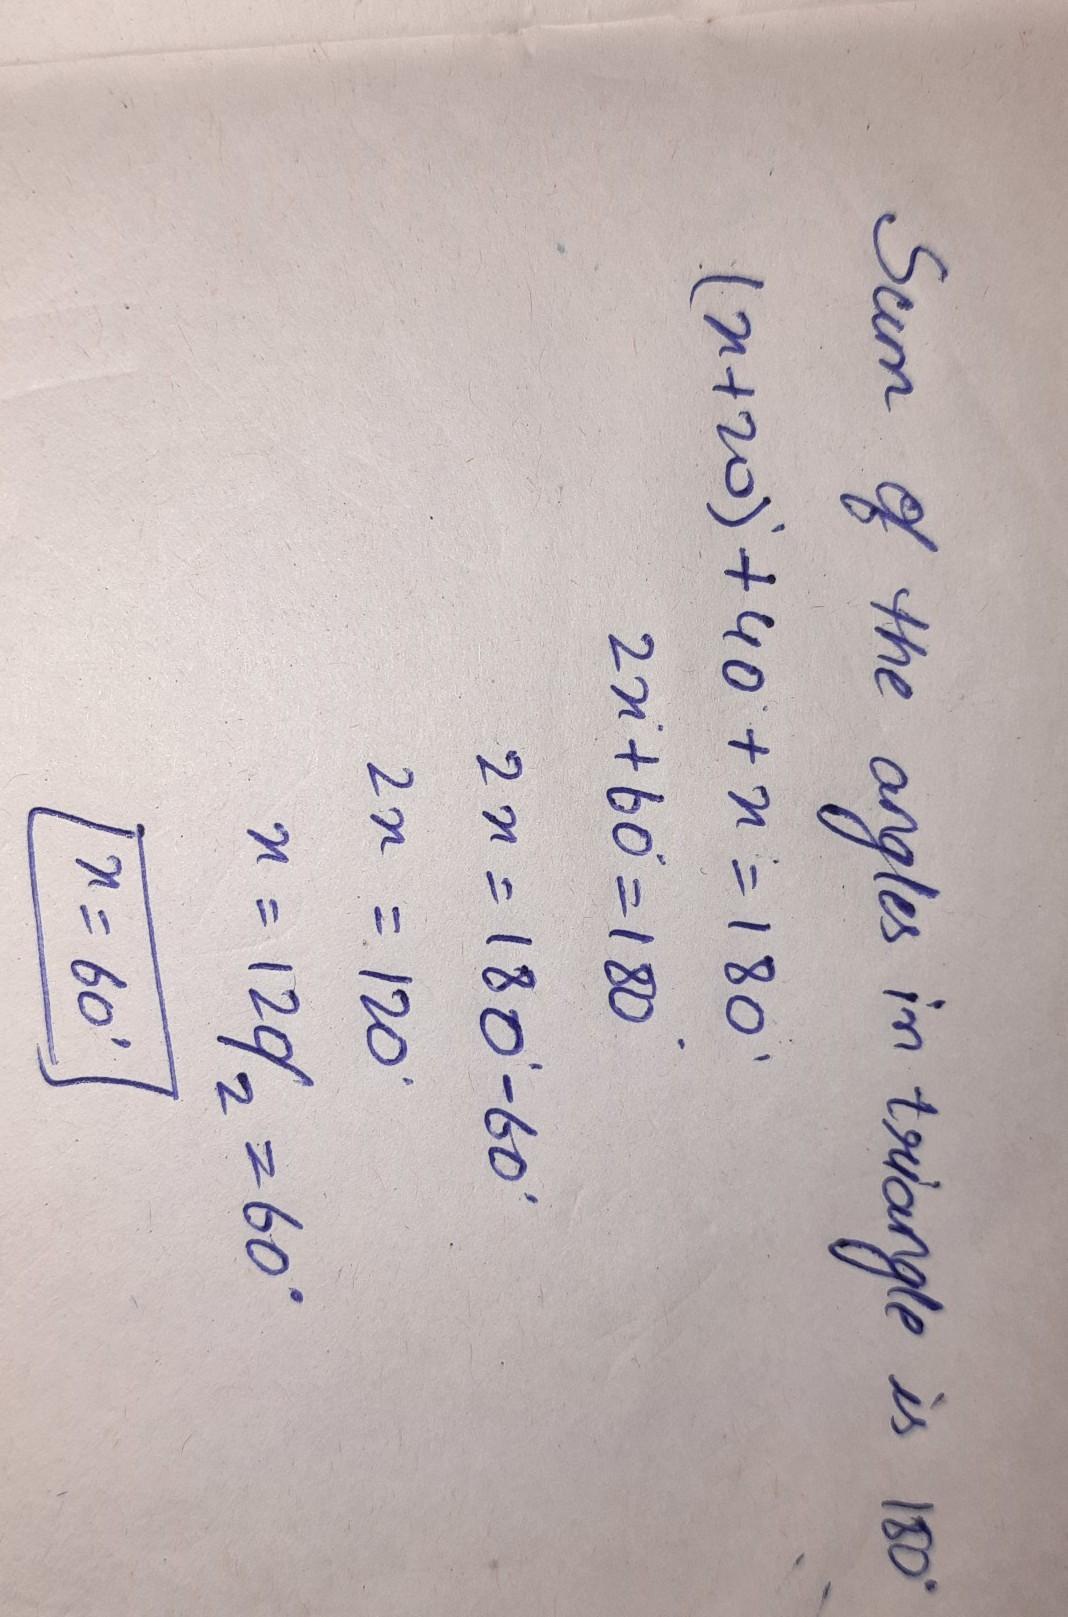 Sum of the angles in triangle is 180°
(x+20)°+40°+x=180°
2x+60°=180°
2x=180°-60°
2x=120°
x=120/2=60°
x=60°